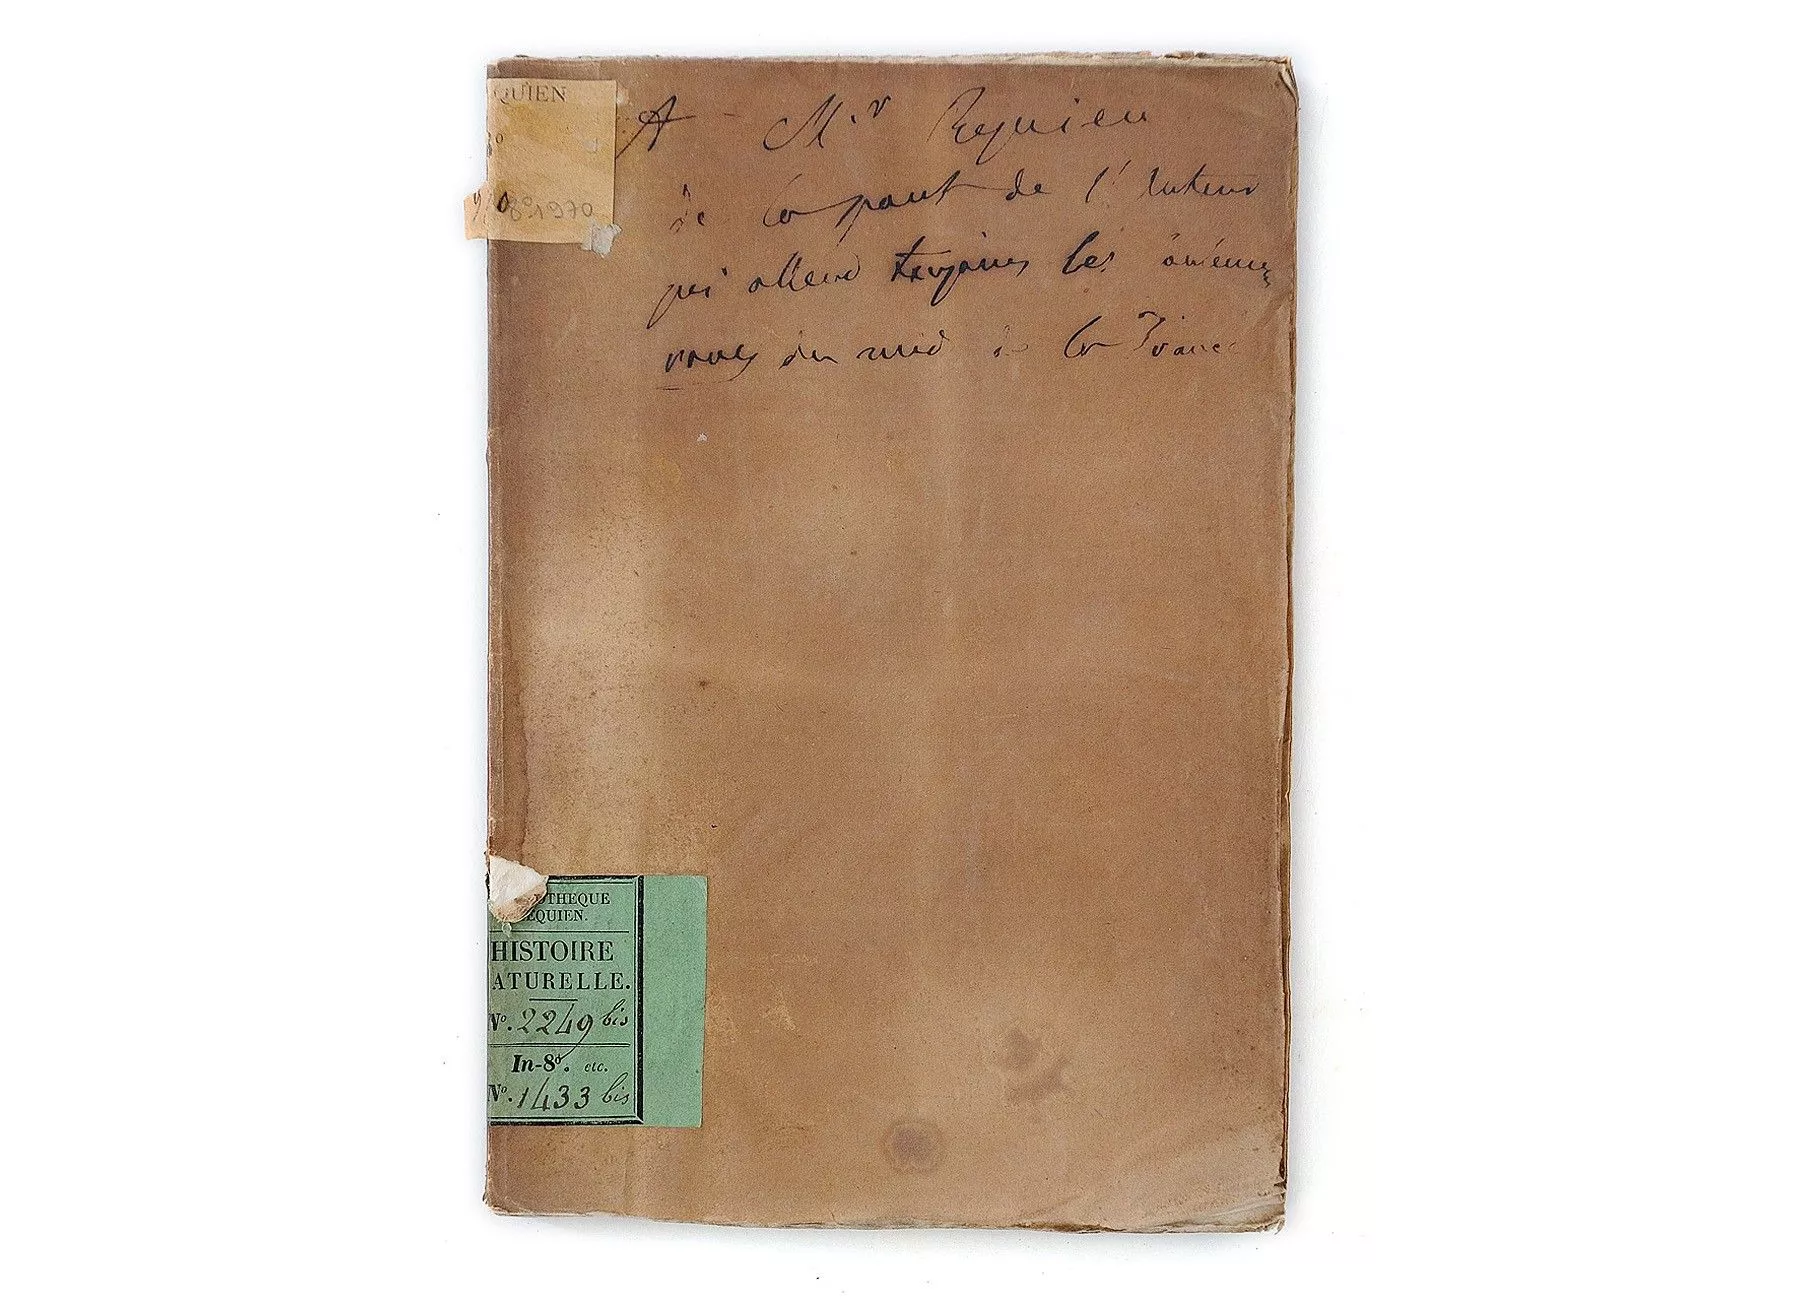 QUIEN
8° 1970
A Mr Requien
de la part de l'Auteur
qui attend toujours les
du midi de la France
OTHEQUE
EQUIEN.
HISTOIRE
ATURELLE.
N°. 2249 bis
In-8°. etc.
N°. 1433 bis